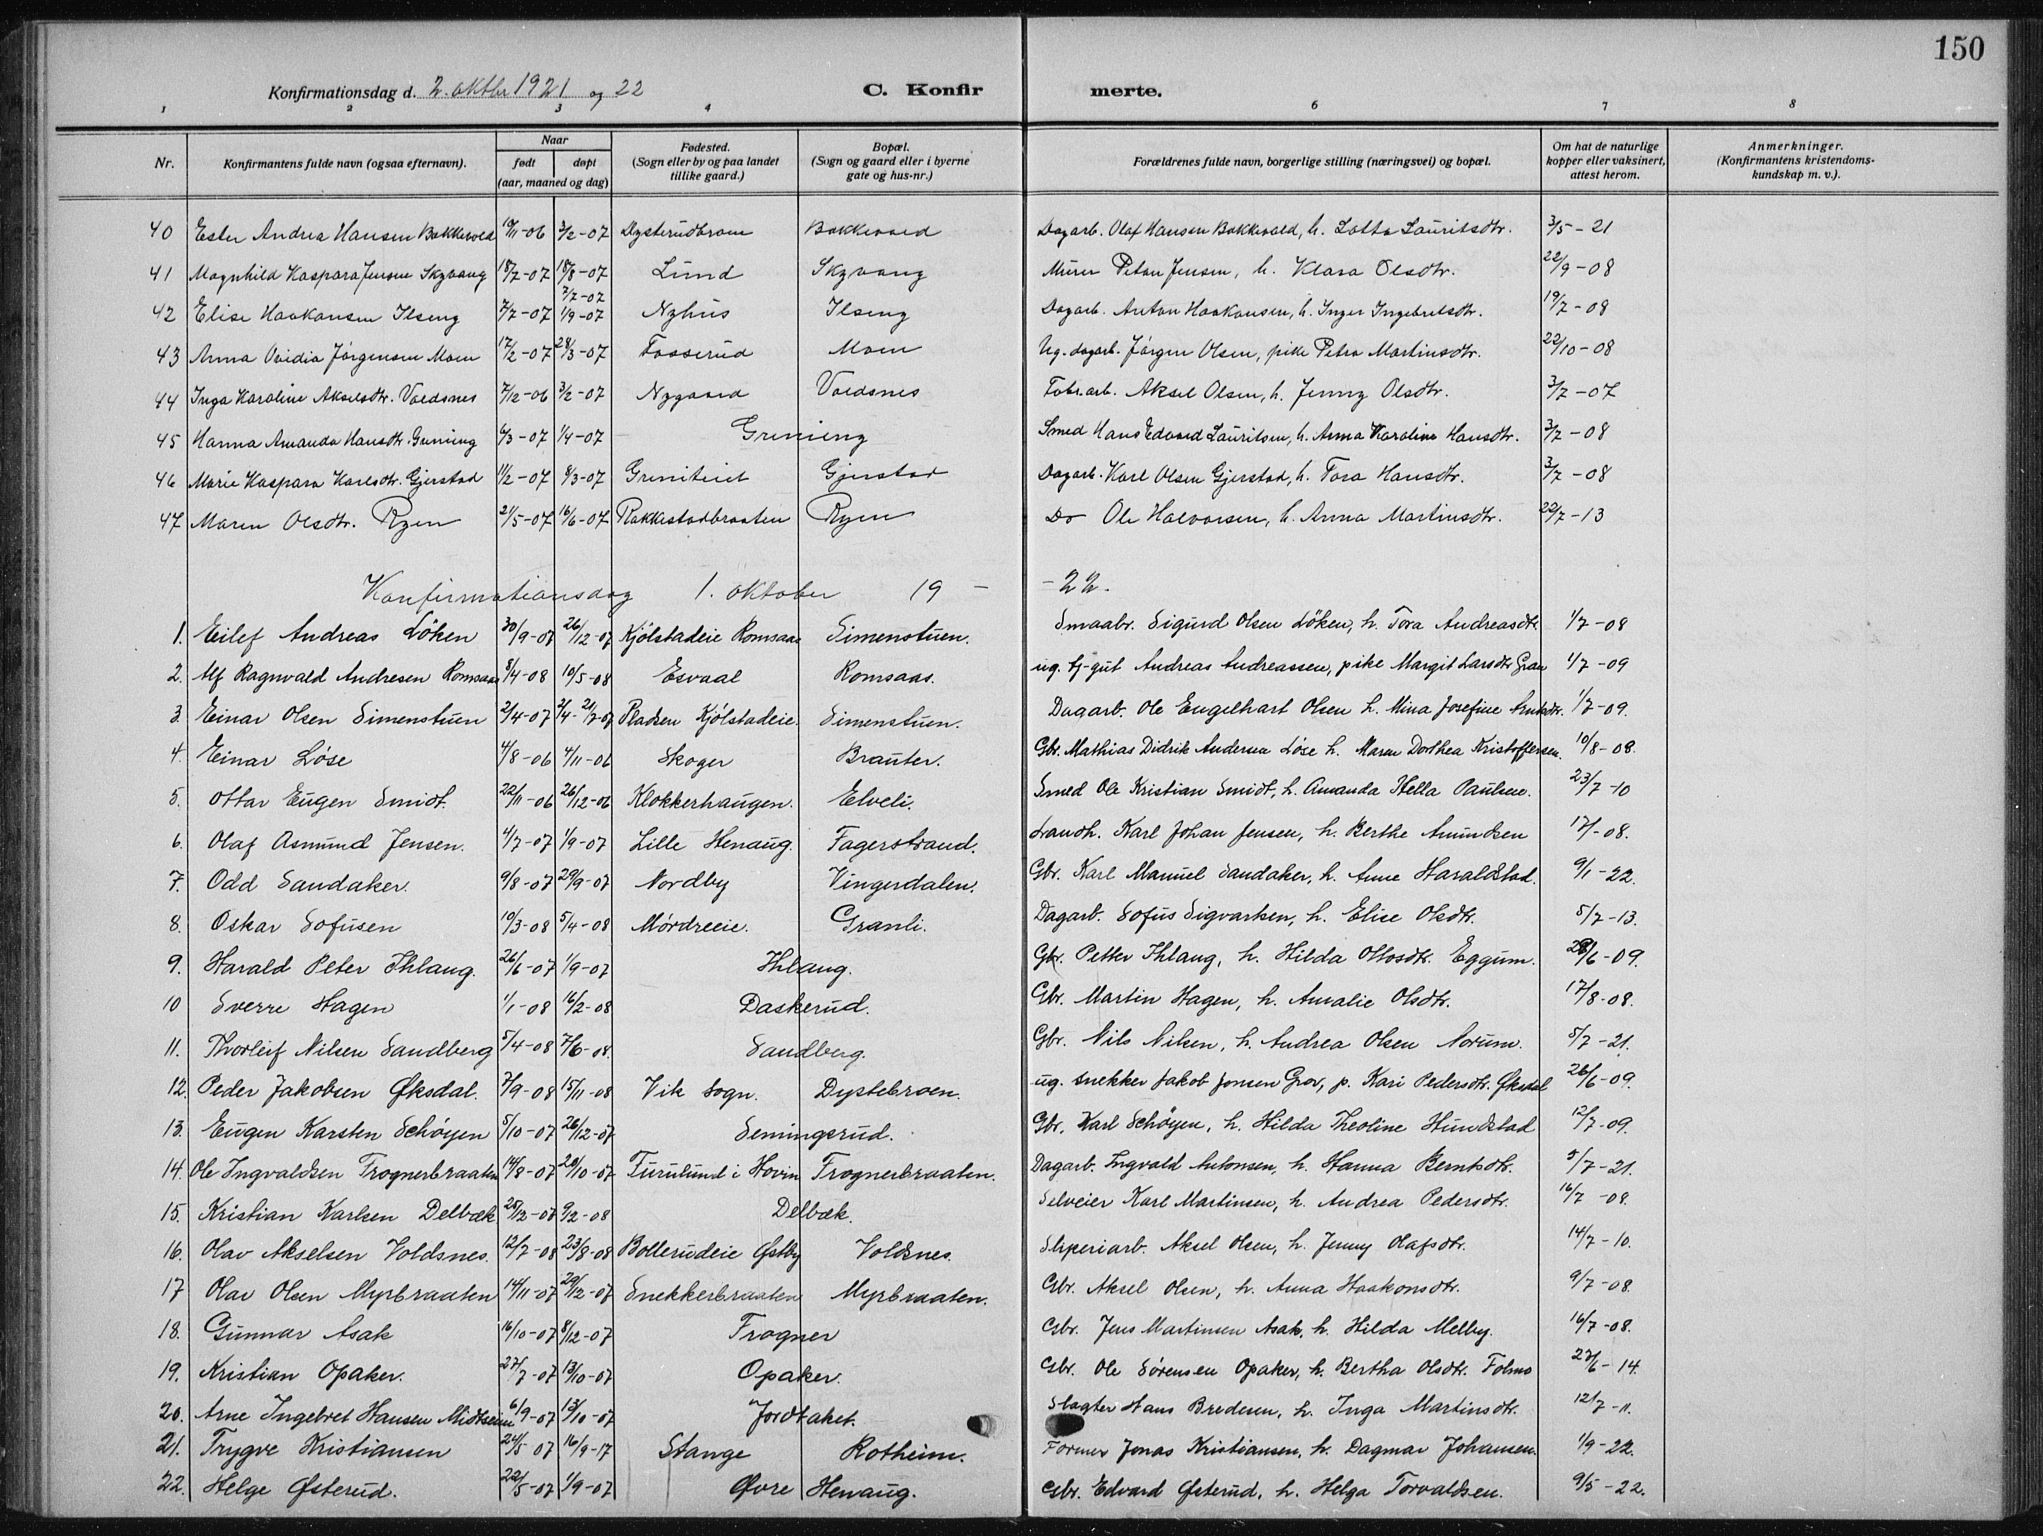 150
Konfirmationsdag d. 2. oktbr 1921 og 22 C. Konfir merte.
1 2 3 4 6 7 8
Nr. Konfirmantens fulde navn (ogsaa efternavn). Naar født døpt (aar, maaned og dag) Fødested. (Sogn eller by og paa landet tillike gaard.) Bopæl. (Sogn og gaard eller i byerne gate og hus-nr.) Forældrenes fulde navn, borgerlige stilling (næringsvei) og bopæl. Om hat de naturlige kopper eller vaksinert, attest herom. Anmerkninger. (Konfirmantens kristendoms-kundskap m. v.).
40 Ester Andrea Hansen Bakkevold 19/11-06 3/2-07 Dysterudbraaten Bakkevold Dagarb. Olaf Hansen Bakkevold, h. Lotta Lauritsdtr. 3/5-21
41 Magnhild Kaspara Jensen Skyvang 18/7-07 18/8-07 Lund Skyvang Murer Petan Jensen, h. Klara Olsdtr. 22/9-08
42 Elise Haakonsen Ilseng 7/7-07 7/7-07 1/9-07 Nyhus Ilseng Dagarb. Anton Haakonsen, h. Inger Ingebretsdtr. 19/7-08
43 Anna Ovidia Jörgensen Moen 17/2-07 28/3-07 Fosserud Moen Ug. dagarb. Jörgen Olsen, pike Petra Martinsdtr. 22/10-08
44 Inga Karoline Akselsdtr. Voldsnes 7/12-06 3/2-07 Nygaard Voldsnes Fabr.arb. Aksel Olsen, h. Jenny Olsdtr. 3/7-07
45 Hanna Amanda Hansdtr. Gruning 6/3-07 1/4-07 Grinieng Smed Hans Edvard Lauritsen, h. Anna Karoline Hansdtr. 3/7-08
46 Marie Kaspara Karlsdtr. Gjerstad 11/2-07 8/3-07 Greniteiet Gjerstad Dagarb. Karl Olsen Gjerstad, h. Tora Hansdtr. 3/7-08
47 Maren Olsdtr. Ryen 21/5-07 16/6-07 Rakkestadbraaten Ryen Do Ole Halvorsen, h. Anna Martinsdtr. 22/7-13
Konfirmationsdag 1. oktober 19 - - 22.
1. Eilef Andreas Löken 30/9-07 26/12-07 Kjölstadeie Romsaas Simenstuen. Smaabr. Sigurd Olsen Löken, h. Tora Andreasdtr. 1/7-08
2. Alf Ragnvald Andresen Romsaas 8/4-08 10/5-08 Esvaal Romsaas. ug. tj-gut Andreas Andreassen, pike Margit Larsdtr Gran 1/7-09
3. Einar Olsen Simenstuen 2/4-07 2/4-21/7-07 Pladsen Kjölstadeie. Simenstuen. Dagarb. Ole Engelhart Olsen h. Mina Josefine 1/7-09.
4. Einar Løse 4/8-06 4/11-06 Skoger Brauter. Gbr. Mathias Didrik Andersen Løse h. Maren Dorthea Kristoffersen. 10/8-08.
5. Ottar Eugen Smidt. 22/11-06 26/12-06 Klokkerhaugen. Elveli. Smed Ole Kristian Smidt, h. Amanda Hella Paulsen. 23/7-10
6. Olaf Asmund Jensen. 4/7-07 1/9-07 Lille Henaug. Fagerstrand. Landh. Karl Johan Jensen, h. Berthe Amundsen 17/-08.
7. Odd Sandaker. 9/8-07 29/9-07 Nordby Vingerdalen. Gbr. Karl Manuel Sandaker, h. Anne Haraldstad. 9/1-22.
8. Oskar Sofusen 10/3-08 5/4-08 Mördreeie. Granli. Dagarb. Sofus Sigvartsen, h. Elise Olsdtr. 5/7-13.
9. Harald Peter Ihlang. 26/6-07 1/9-07 Ihlang. Gbr. Petter Ihlang, h. Hilda Ottosdtr. Eggum. 28/6-09.
10 Sverre Hagen 1/1-08 16/2-08 Daskerud. Gbr. Martin Hagen, h. Amalie Olsdtr. 17/8-08.
11. Thorleif Nilsen Sandberg 5/4-08 7/6-08. Sandberg. Gbr. Nils Nilsen, h. Andrea Olsen Norum. 5/7-21.
12. Peder Jakobsen Øksdal. 7/9-08 15/11-08 Vik sogn. Dystebroen. ug. snekker Jakob Jonsen Grov, p. Kari Pedersdtr. Øksdal 26/6-09.
13. Eugen Karsten Schöyen 5/10-07 26/12-07 Semingsrud. Gbr. Karl Schöyen, h. Hilda Theoline Hundstad 12/7-09.
14. Ole Ingvaldsen Frognerbraaten 14/8-07 20/10-07 Furulund i Hovin Frognerbraaten. Dagarb. Ingvald Antonsen, h. Hanna Berntsdtr. 5/7-21.
15. Kristian Karlsen Delbæk 25/12-07 9/2-08 Delbæk. Selveier Karl Martinsen, h. Andrea Pedersdtr. 16/7-08.
16. Olav Akselsen Voldsnes. 12/7-08 23/8-08 Bollerudeie Østby Voldsnes. Sliperiarb. Aksel Olsen, h. Jenny Olafsdtr. 14/7-10.
17 Olav Olsen Myrbraaten 14/11-07 29/12-07 Snekkerbraaten Myrbraaten. Gbr. Aksel Olsen, h. Anna Haakonsdtr. 9/7-08.
18. Gunnar Asak 16/10-07 8/12-07 Frogner Gbr. Jens Martinsen Asak, h. Hilda Melby. 16/7-08.
19. Kristian Opaker. 27/7-07 13/10-07 Opaker. Gbr. Ole Sörensen Opaker, h. Bertha Olsdtr. Folmo 27/6-14.
20. Arne Ingebret Hansen Midtseim 6/9-07 13/10-07 Jordtaket. Slagter Hans Bredesen, h. Inga Martinsdtr. 12/7-11.
21. Trygve Kristiansen 24/5 07 16/9-17 Stange Rotheim. Former Jonas Kristiansen, h. Dagmar Johansen. 1/9-22.
22. Helge Østerud. 22/5-07 1/9-07 Øvre Henaug. Gbr. Edvard Østerud, h. Helga Torvaldsen. 9/5-22.